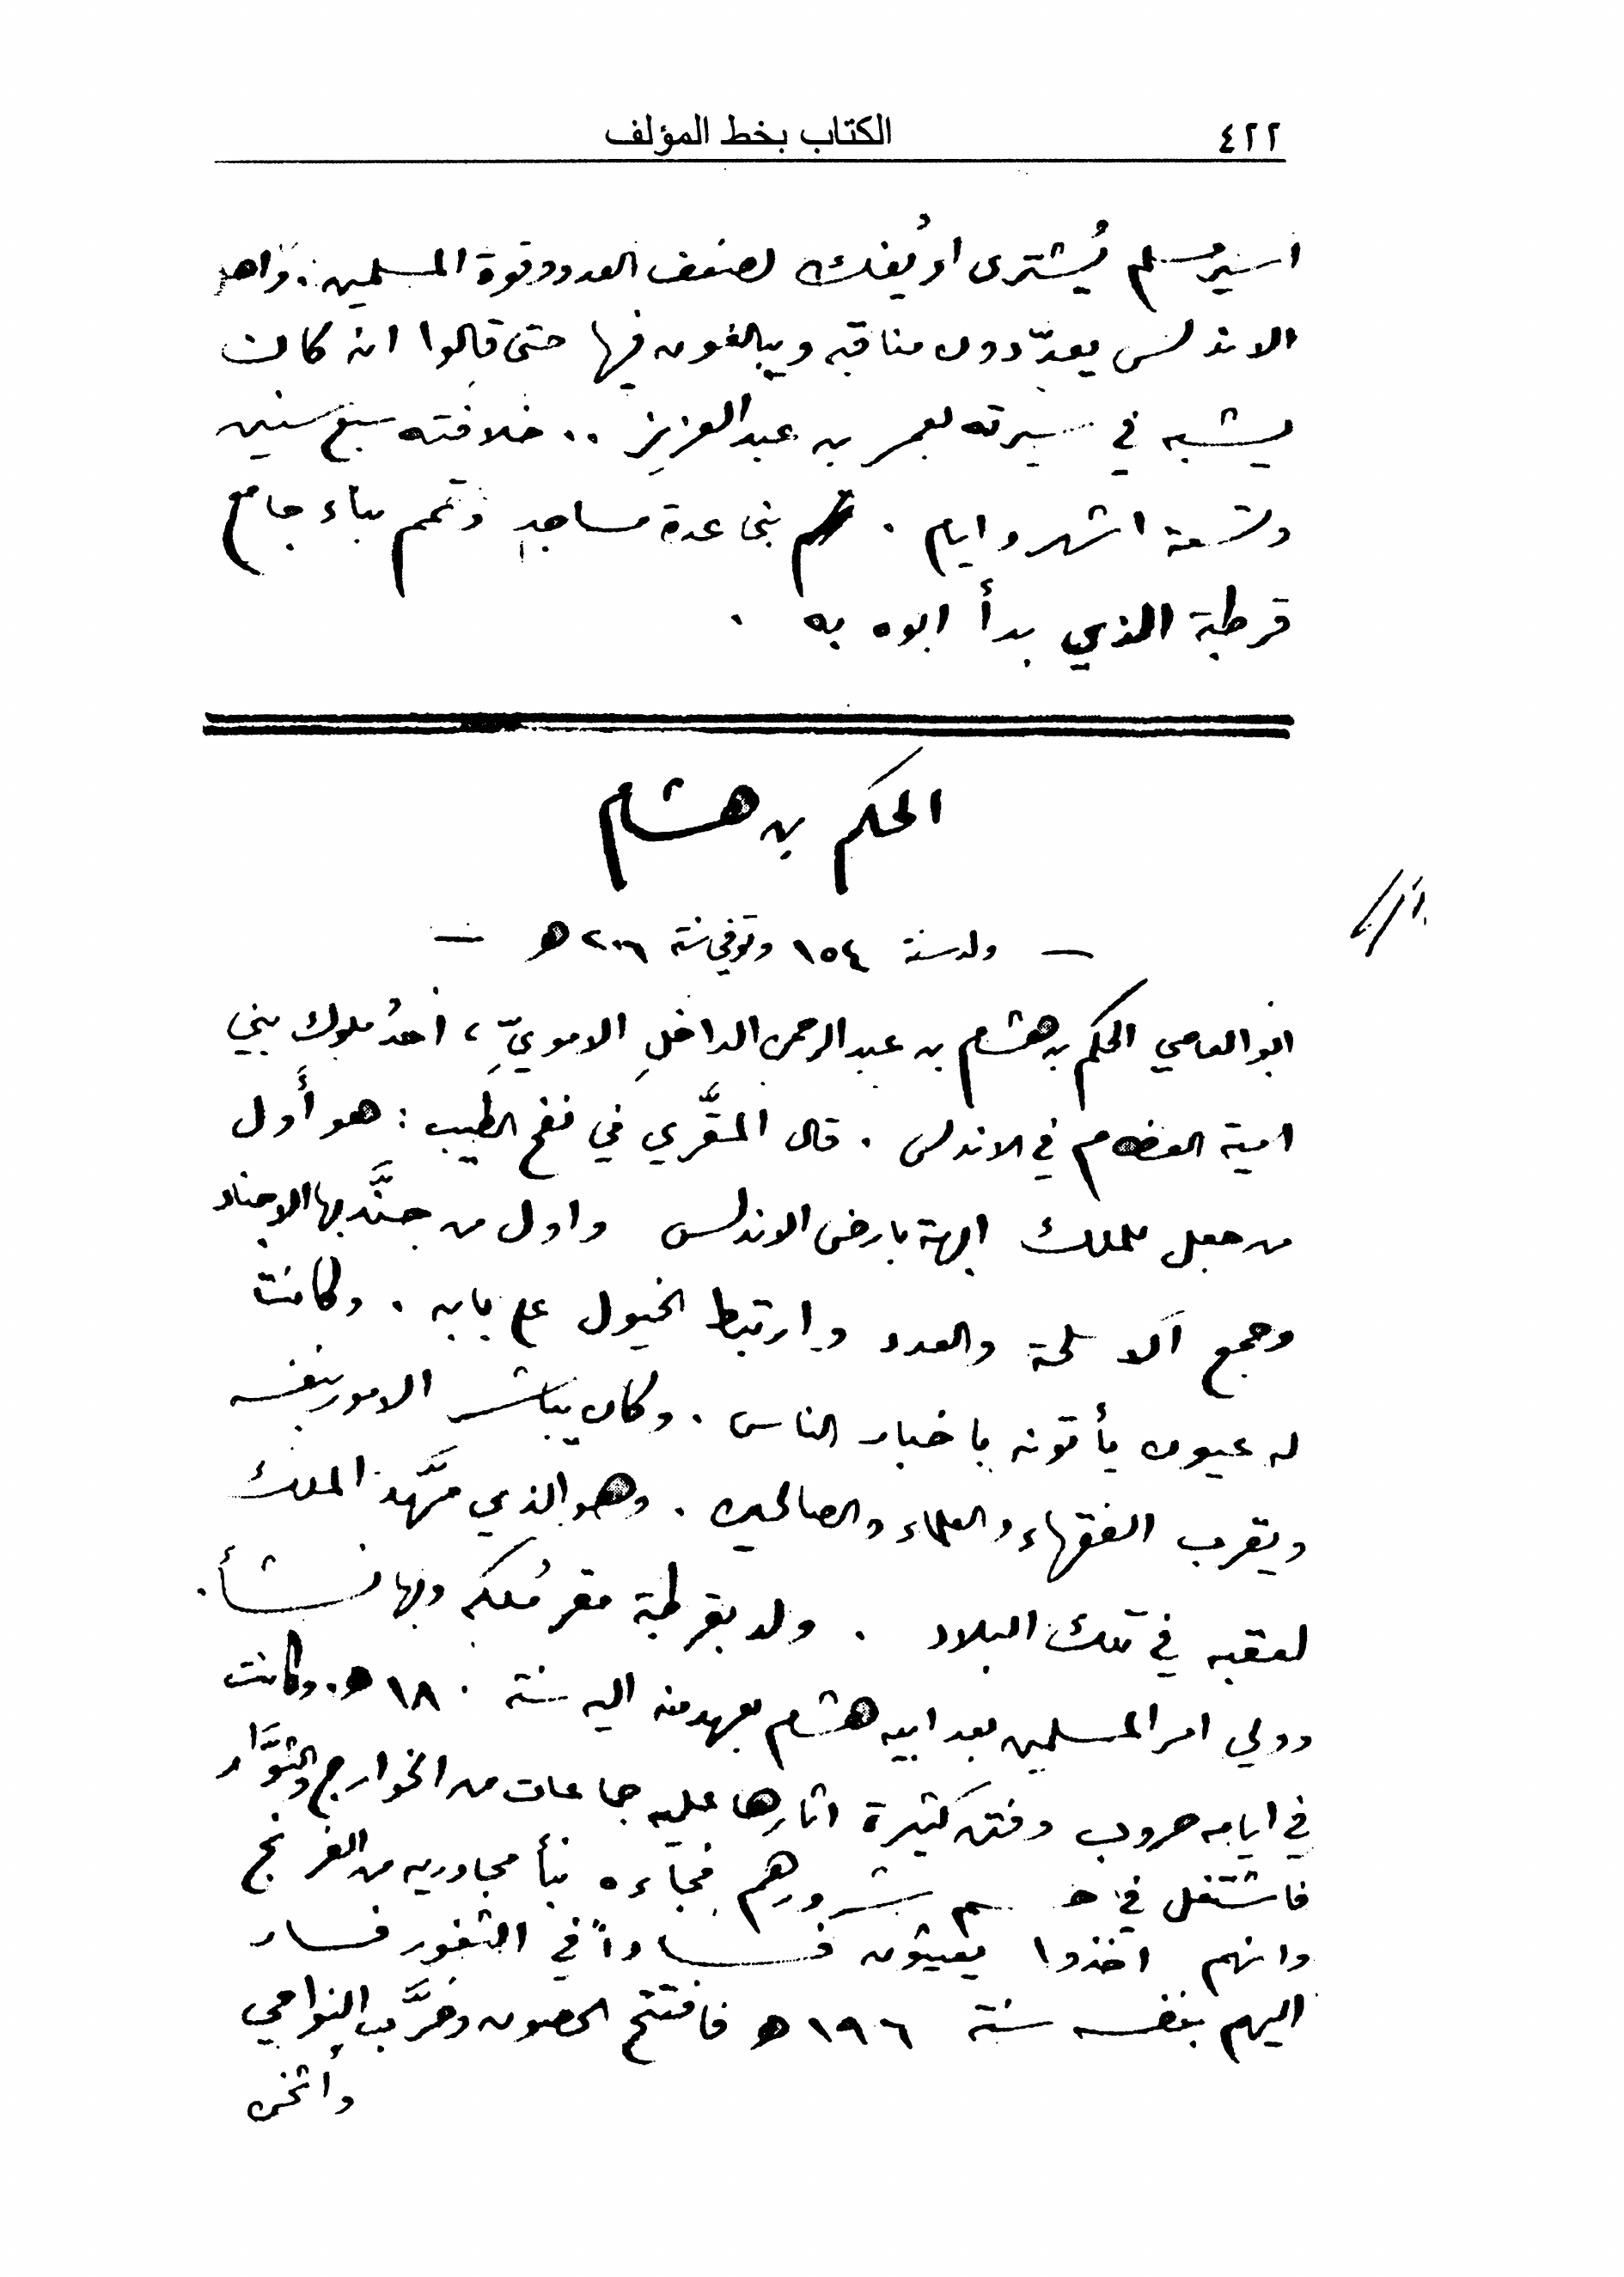 ٤٢٢ الكتاب بخط المؤلف
اسير مسلم يُشترى او يُفك لضعف العدو وقوة المسلمين. واهل
الاندلس يعدّدون مناقبه ويبالغون فيها حتى قالوا انه كان
يشبه في سيرته لعمر بن عبد العزيز .. خلافته سبع سنين
وتسعة اشهر وايام . بنى عدة مساجد وتمم بناء جامع
قرطبة الذي بدأ ابوه به .
الحكم بن هشام
— ولد سنة ١٥٤ وتوفي سنة ٢٠٦ ه —
ابو العاصي الحكم بن هشام بن عبد الرحمن الداخلِ الامويِّ ، احدُ ملوك بني
امية العظام في الاندلس . قال المقَّري في نفح الطيب : هو أَول
من جعل للملك ابهة بارض الاندلس واول من جنَّد بها الاجناد
وجمع الاسلحة والعدد وارتبط الخيول على بابه . وكانت
له عيون يأتونه باخبار الناس . وكان يباشر الامور بنفسه
ويقرب الفقهاء والعلماء والصالحين . وهو الذي مهَّد الملك
لعقبه في تلك البلاد . ولد بقرطبة مقر مُلكه وبها نشأ .
وولي امر المسلمين بعد ابيه هشام بعهد منه اليه سنة ١٨٠ ه . وكانت
في ايامه حروب وفتن كثيرة اثارها عليه جماعات من الخوارج والثوَّار
فاشتغل في حسم شرورهم فجاءه نبأ مجاوريه من الفرنج
وانهم اخذوا يعيثون فساداً في الثغور فسار
اليهم بنفسه سنة ١٩٦ ه فافتتح الحصون وخرَّب النواحي
وأثخن